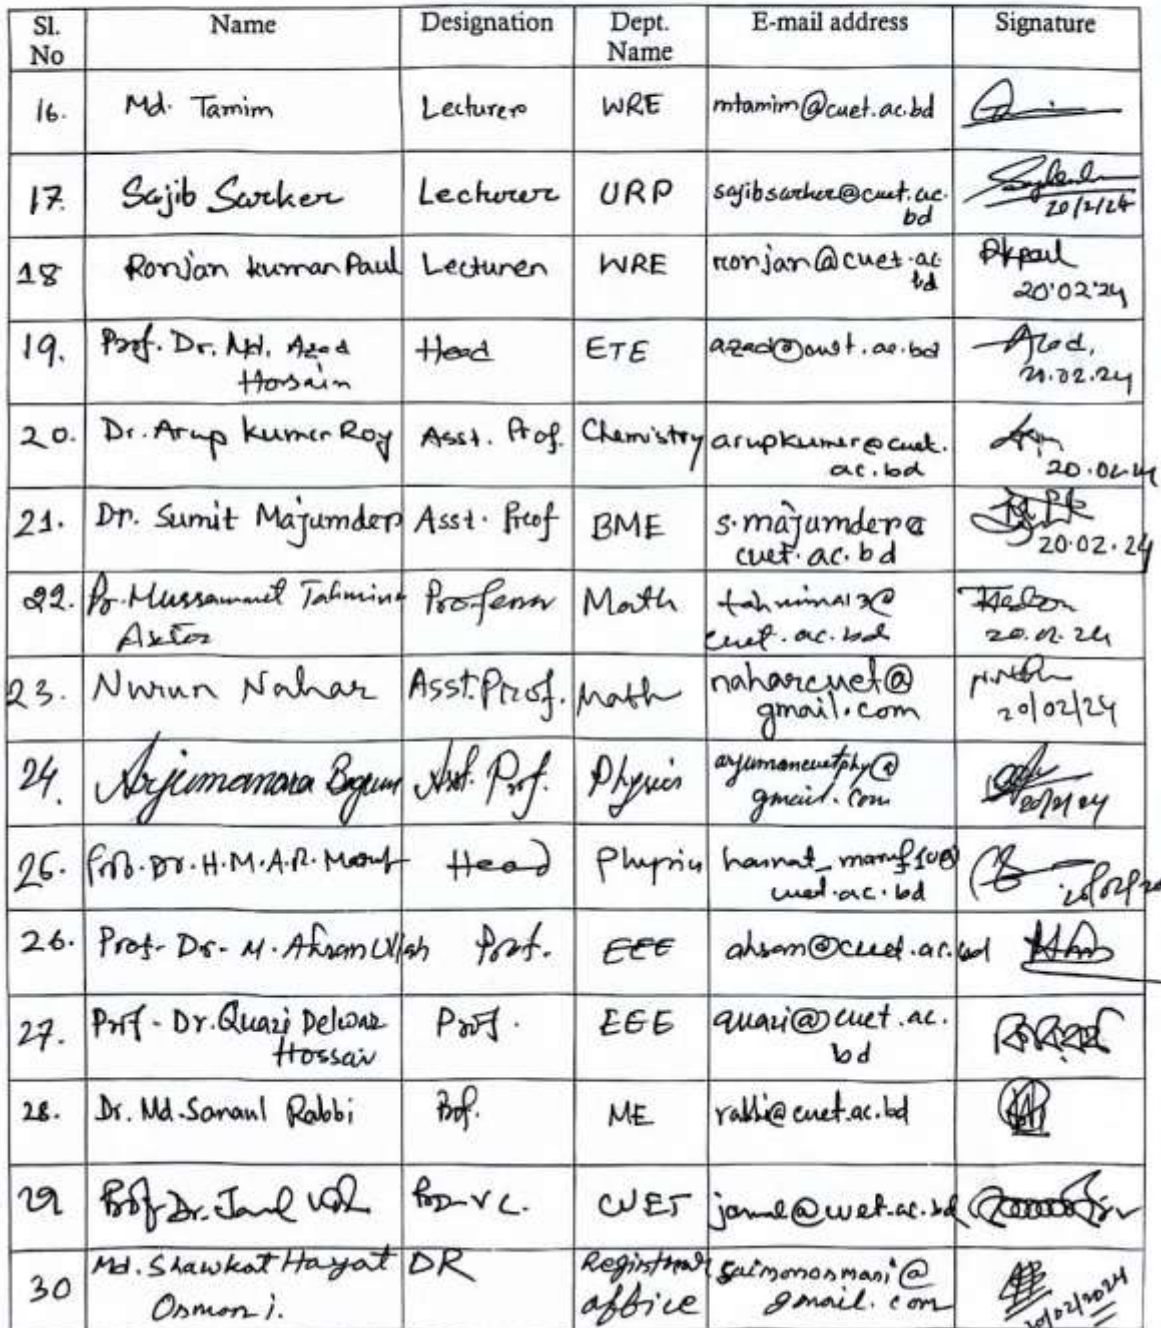 Sl. No Name Designation Dept. Name E-mail address Signature
16. Md. Tamim Lecturer WRE mtamim@cuet.ac.bd
17. Sajib Sarker Lecturer URP sajibsarker@cuet.ac.
bd 20/2/24
18 Ronjan kumar Paul Lecturer WRE ronjan@cuet.ac Rkpaul
bd 20.02.24
19. Prof. Dr. Md. Azad Head ETE azad@cuet.ac.bd Azad.
Hossain 20.02.24
20. Dr. Arup kumer Roy Asst. Prof. Chemistry arupkumer@cuet.
ac.bd 20.02.24
21. Dr. Sumit Majumder Asst. Prof BME s.majumder@
cuet.ac.bd 20.02.24
22. Dr. Mussammet Tahmina Professor Math tahmina13@
Akter cuet.ac.bd 20.02.24
23. Nurun Nahar Asst. Prof. Math naharcuet@
gmail.com 20/02/24
24. Arjumanara Begum Asst. Prof. Physics arjumancuetphy@
gmail.com 20/2/24
25. Prof. Dr. H.M.A.R. Maruf Head Physics
cuet.ac.bd
26. Prof. Dr. M. Ahsan Ullah Prof. EEE ahsan@cuet.ac.bd
27. Prof. Dr. Quazi Delwar Prof. EEE quazi@cuet.ac.
Hossain bd
28. Dr. Md. Sanaul Rabbi Prof. ME rabbi@cuet.ac.bd
29 Prof. Dr. Jamal Pro-VC. CUET jamal@cuet.ac.bd
30 Md. Shawkat Hayat DR Registrar saimonosmani@
Osmani. office gmail.com 20/02/2024